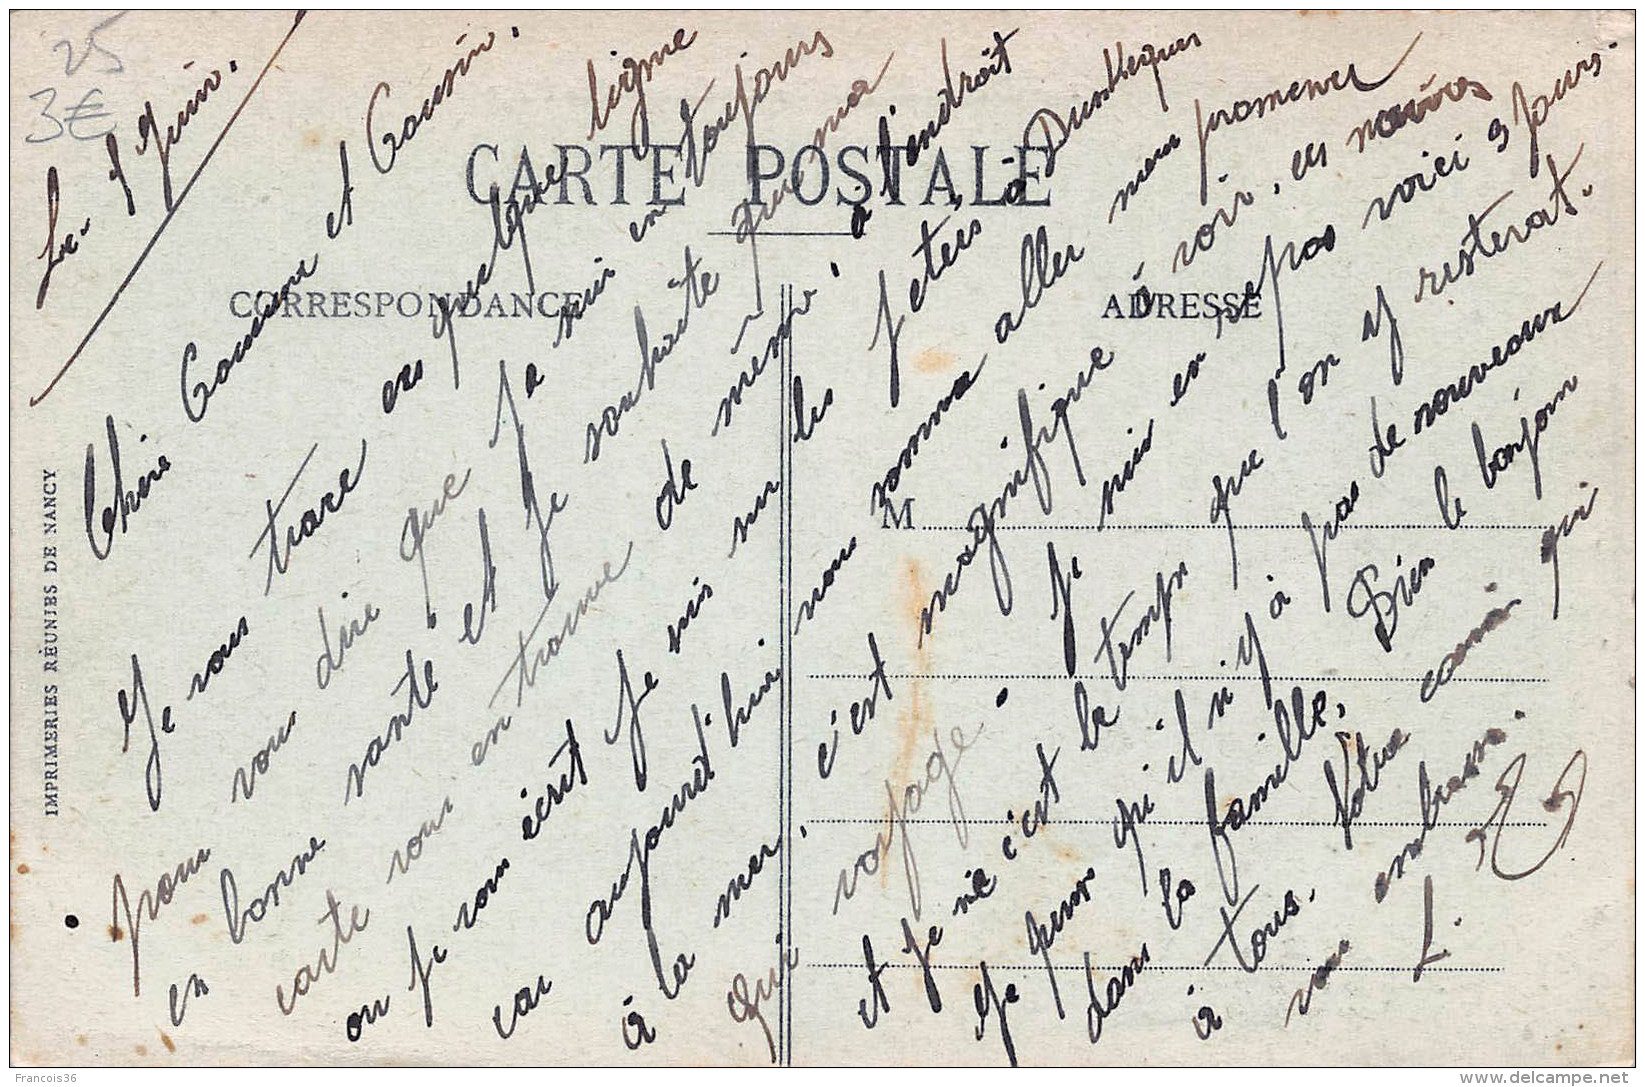 25
3€
Le 8 Juin.
CARTE POSTALE
CORRESPONDANCE
ADRESSE
M
IMPRIMERIES RÉUNIES DE NANCY
Chère Cousine et Cousin.
Je vous trace ces quelque ligne
pour vous dire que je suis en toujours
en bonne santé et je souhaite que ma
carte vous en trouve de même à l'endroit
ou je vous écrit je suis sur les jetées à Dunkerques
car aujourd'hui nous somme aller nous promener
à la mer. c'est magnifique à voir, ces navires
qui voyage. Je suis en repos voici 3 jours.
et je c'est le temps que l'on y resterat.
Je pense qu'il n'y à pas de nouveaux
dans la famille, Bien le bonjour
à tous. Votre cousin qui
vous embrasse.
L.
Francois36
delcampe.net